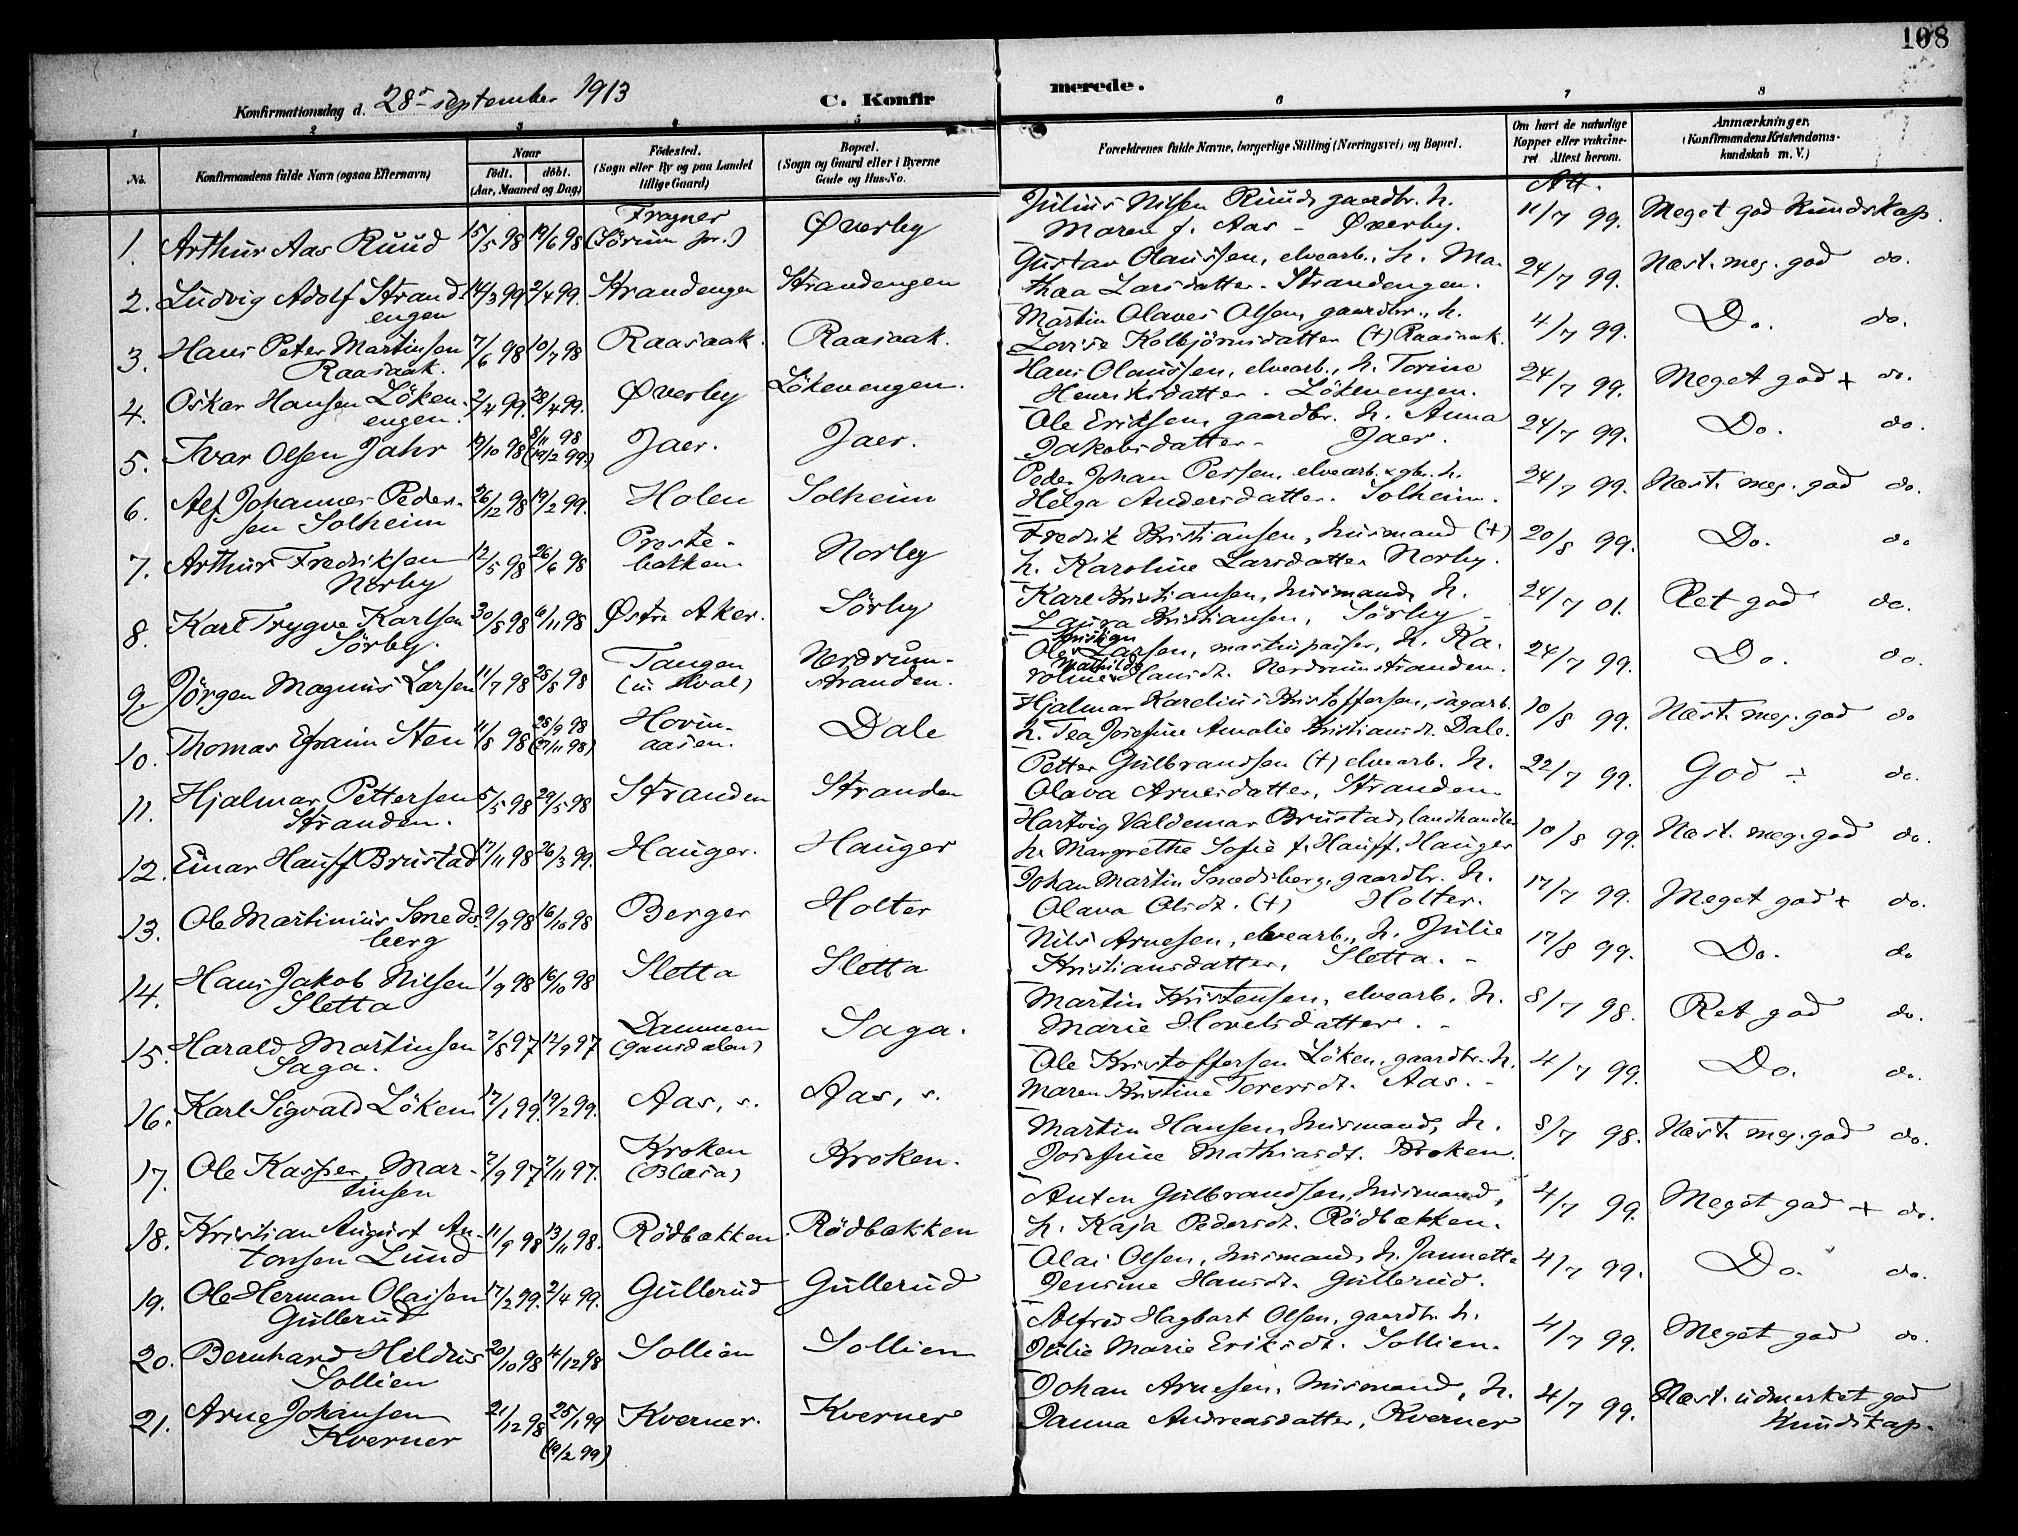 108
Konfirmationsdag d. 28de september 1913 C. Konfirmerede.
1 2 3 4 5 6 7 8
No. Konfirmandens fulde Navn (ogsaa Efternavn) Naar födt. döbt. (Aar, Maaned og Dag) Födested. (Sogn eller By og paa Landet tillige Gaard) Bopæl. (Sogn og Gaard eller i Byerne Gade og Hus-No. Forældrenes fulde Navne, borgerlige Stilling (Næringsvei) og Bopæl. Om havt de naturlige Kopper eller vakcineret. Attest herom. Anmærkninger. (Konfirmandens Kristendomskundskab m. V.)
Att.
1. Arthur Aas Ruud 15/5 98 19/6 98 Frogner (Sörum pr.) Øverby Julius Nilsen Ruud, gaardbr. h. 11/7 99. Meget god kundskap.
Maren f. Aas - Øverby.
2. Ludvig Adolf Strand- 14/3 99 2/4 99. Strandengen Strandengen Gustav Olaussen, elvearb., h. Ma- 24/7 99. Næst. meg. god do.
engen thea Larsdatter. Strandengen.
3. Hans Peter Martinsen 7/6 98 10/7 98 Raasaak. Raasaak. Martin Olaves Olsen, gaardbr., h. 4/7 99. Do. do.
Raasaak. Lovise Kolbjörnsdatter (+) Raasaak.
4. Oskar Hansen Löken- 2/4 99. 28/4 99. Øverby Lökenengen. Hans Olaussen, elvearb., h. Torine 24/7 99. Meget god + do.
engen. Henriksdatter. Lökenengen.
5. Ivar Olsen Jahr 19/10 98 8/11 98 (19/2 99.) Jaer. Jaer. Ole Eriksen, gaardbr. h. Anna 24/7 99. Do. do.
Jakobsdatter - Jaer.
6. Alf Johannes Peder- 26/12 98 19/2 99. Holen Solheim Peder Johan Persen, elvearb. & gbr. h. 24/7 99. Næst. meg. god do.
sen Solheim Helga Andersdatter. Solheim.
7. Arthur Fredriksen 12/5 98 26/6 98 Preste- bakken. Norby Fredrik Kristiansen, husmand (+) 20/8 99. Do. do
Norby h. Karoline Larsdatter Norby.
8. Karl Trygve Karlsen 30/8 98 6/11 98 Østre Aker. Sörby Karl Kristiansen, husmand, h. 24/7 01. Ret god do.
Sörby. Laura Kristiansen, Sörby -
9. Jörgen Magnus Larsen 11/7 98 28/8 98 Tangen (u. Hval) Nerdrum- stranden. Ole Kristian Larsen, maskinpasser, h. Ka- 24/7 99. Do. do.
roline Mathilde Hansdt. Nerdrumstranden.
10. Thomas Efraim Sten 11/8 98 28/9 98 (27/11 98) Hovin- aasen. Dale Hjalmar Karelius Kristoffersen, sagarb. 10/8 99. Næst. meg. god do
h. Tea Josefine Amalie Kristiansdt. Dale.
11. Hjalmar Pettersen 5/5 98 29/5 98 Stranden Stranden Petter Gulbrandsen (+) elvearb. h. 22/7 99. God ÷ do.
Stranden. Olava Arnesdatter, Stranden.
12. Einar Hauff Brustad 17/11 98 26/3 99. Hauger. Hauger Hartvig Valdemar Brustad, landhandler 10/8 99. Næst. meg. god do.
h. Margrethe Sofie f. Hauff. Hauger
13. Ole Martinius Smeds- 9/9 98 16/10 98 Berger Holter Johan Martin Smedsberg, gaardbr. h. 17/7 99. Meget god + do.
berg Olava Olsdt. (+) Holter.
14. Hans Jakob Nilsen 1/9 98 16/10 98 Sletta Sletta Nils Arnesen, elvearb., h. Julie 17/8 99. Do. do
Sletta Kristiansdatter, Sletta. -
15. Harald Martinsen 2/8 97 12/9 97 Dammen (Gansdalen) Saga. Martin Kristensen, elvearb. h. 8/7 98. Ret god do.
Saga. Marie Hovelsdatter. -
16. Karl Sigvald Löken 17/1 99. 19/2 99. Aas, s. Aas, s. Ole Kristoffersen Löken, gaardbr. h. 4/7 99. Do. do.
Maren Kristine Torersdt. Aas. -
17. Ole Kasper Mar- 2/9 97 7/11 97. Kroken (Blæsa) Kroken. Martin Hansen, husmand, h. 8/7 98. Næst. meg. god do.
tinsen Josefine Mathiasdt. Kroken.
18. Kristian August An- 11/9 98 13/11 98. Rödbakken Rödbakken Anton Gulbrandsen, husmand, 4/7 99. Meget god + do.
tonsen Lund h. Kaja Pedersdt. Rödbakken.
19. Ole Herman Olaisen 17/2 99. 2/4 99. Gullerud Gullerud Olai Olsen, husmand, h. Jannette 4/7 99. Do. do.
Gullerud Jensine Hansdt. Gullerud.
20. Bernhard Hildus 20/10 98 4/12 98 Sollien Sollien Alfred Hagbart Olsen, gaardbr. h. 4/7 99. Meget god do.
Sollien Julie Marie Eriksdt. Sollien.
21. Arne Johansen 21/12 98 25/1 99 (19/2 99) Kverner. Kverner Johan Arnesen, husmand, h. 4/7 99. Næst. udmerket god
Kverner Janna Andreasdatter, Kverner kundskap.